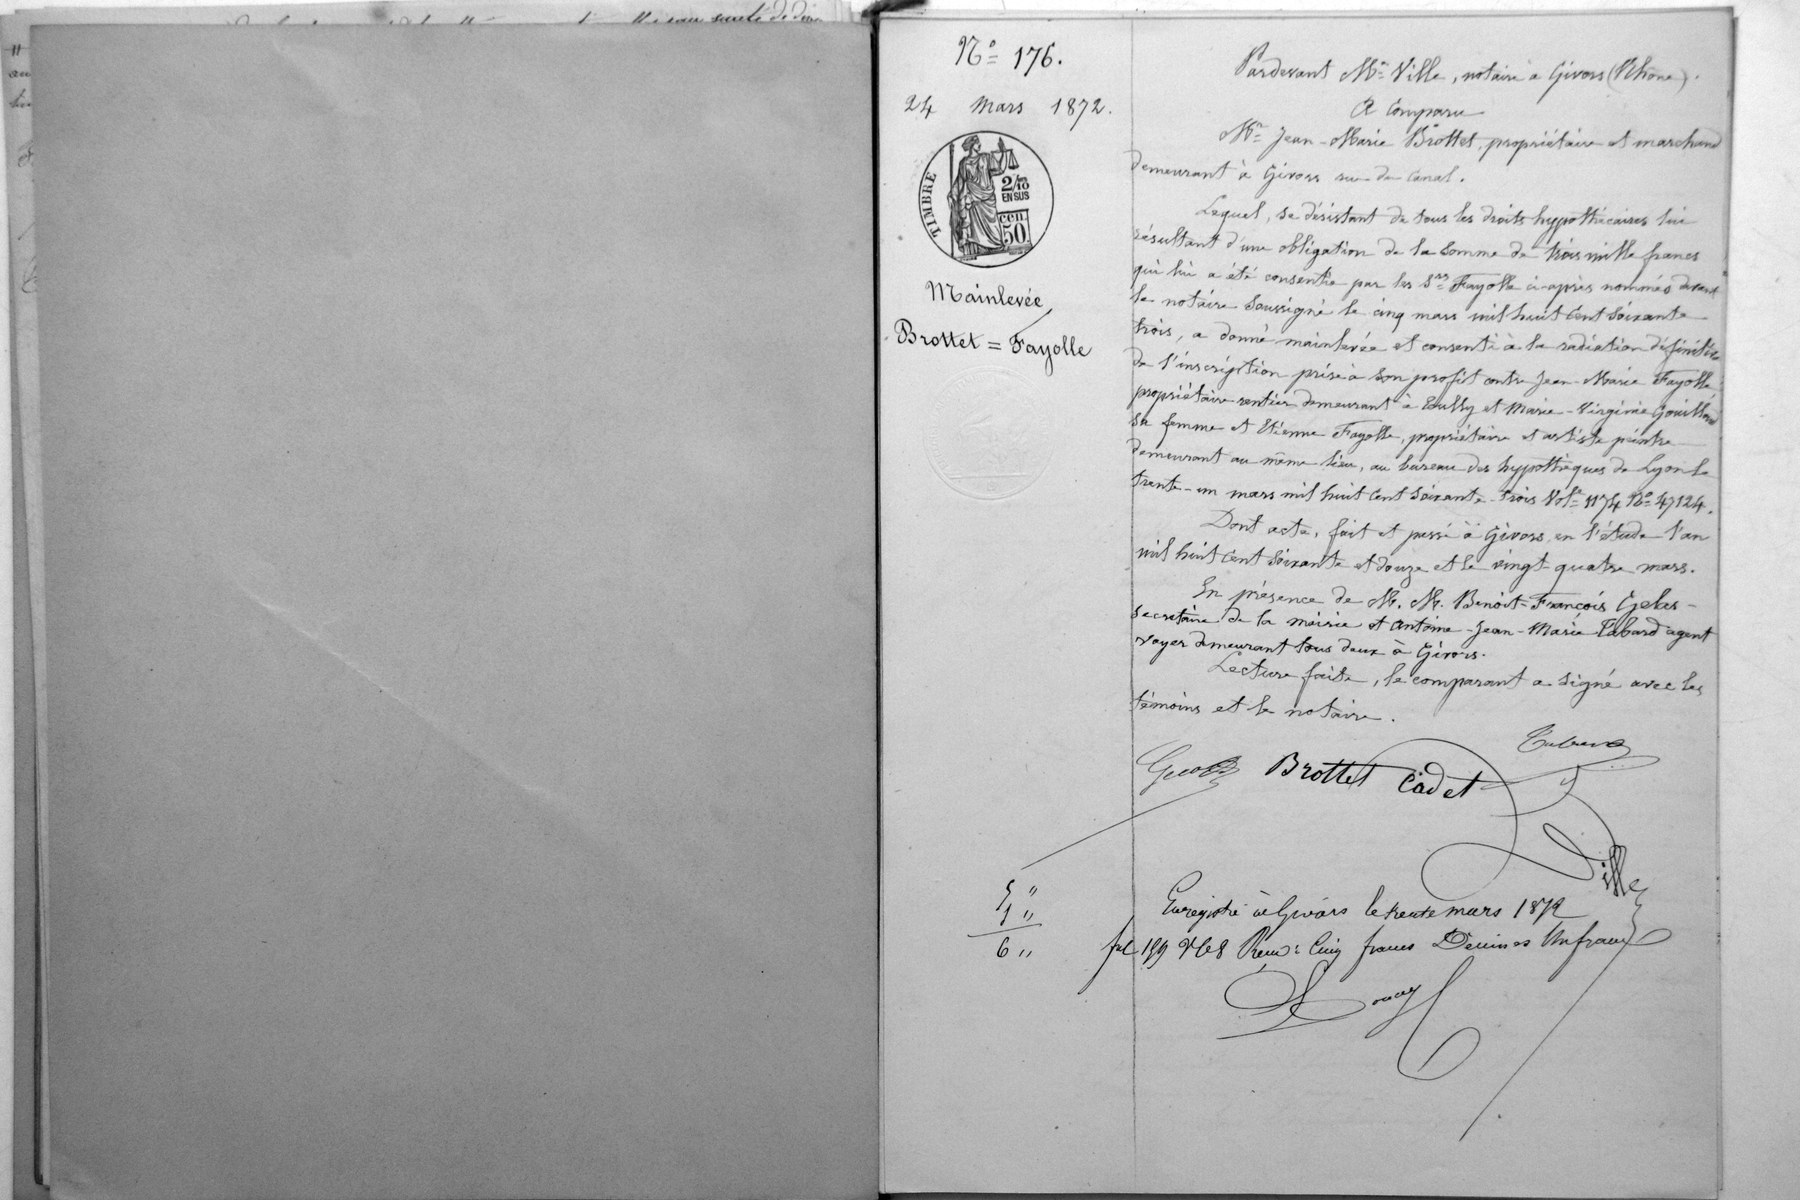 N° 176.
24 Mars 1872.
TIMBRE
2/10
EN SUS
50 cen
Mainlevée
Brottet = Fayolle
Pardevant Me Ville, notaire à Givors (Rhône).
A Comparu
Mr Jean-Marie Brottet, propriétaire et marchand
demeurant à Givors rue du Canal.
Lequel, se désistant de tous les droits hypothécaires lui
résultant d'une obligation de la somme de trois mille francs
qui lui a été consentie par les Srs Fayolle ci-après nommés devant
le notaire soussigné le cinq mars mil huit cent soixante
trois, a donné mainlevée et consenti à la radiation définitive
de l'inscription prise à son profit contre Jean-Marie Fayolle
propriétaire rentier demeurant à et Marie-Virginie
sa femme et Etienne Fayolle, propriétaire et artiste peintre
demeurant au même lieu, au bureau des hypothèques de Lyon le
trente-un mars mil huit cent soixante-trois Vol. 1174 N° 47124.
Dont acte, fait et passé à Givors en l'étude l'an
mil huit cent soixante et douze et le vingt quatre mars.
En présence de M. M. Benoit-François
secrétaire de la mairie et Antoine-Jean-Marie Tabard agent
voyer demeurant tous deux à Givors.
Lecture faite, le comparant a signé avec les
témoins et le notaire.
Brottet Cadet
Ville
5 "
1 "
6 "
Enregistré à Givors le trente mars 1872
fol 159 Reçu: Cinq francs Décimes Un franc